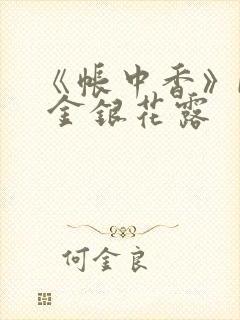 《帳中香》
金銀花露
何金良